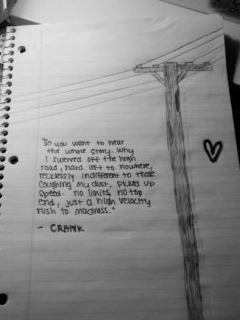 "So you want to hear
the whole story. Why
I swerved off the high
road, hard left to nowhere,
recklessly indifferent to those
coughing my dust, picked up
speed. no limits, no top
end, just a high velocity
rush to madness."
- CRANK